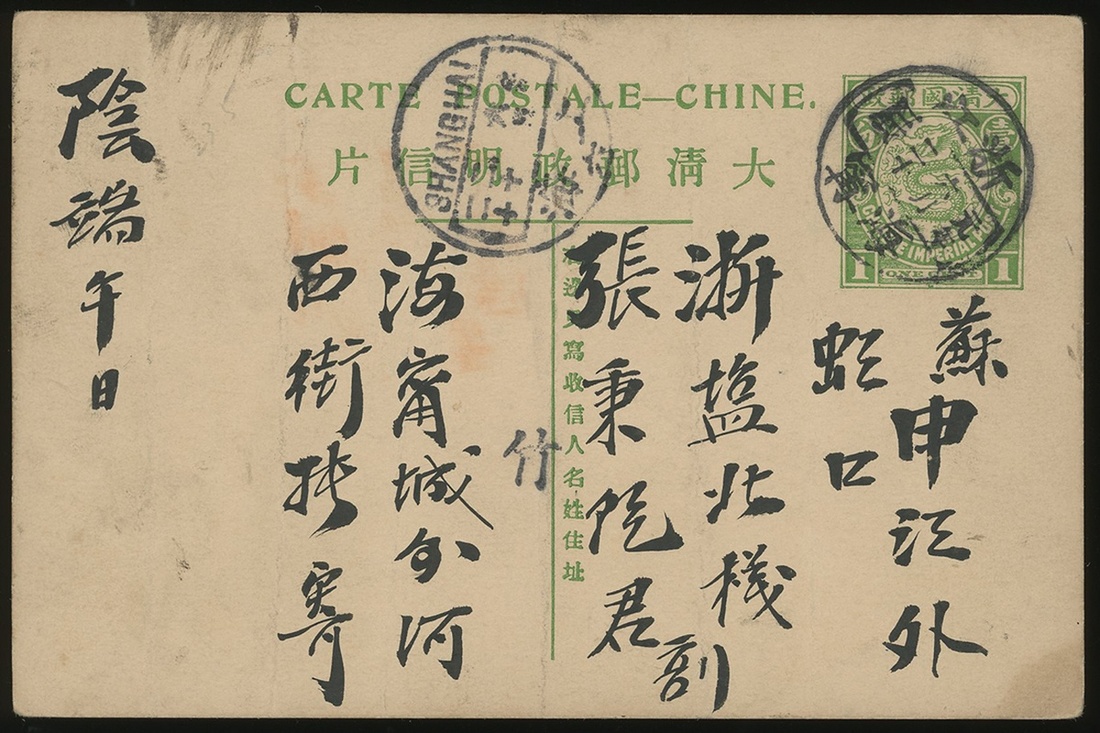 CARTE POSTALE—CHINE.
大清郵政明信片
大清國郵政
IMPERIAL
1 ONE CENT 1
SHANGHAI
上海
右邊只寫收信人名姓住址
蘇申江外
虹口
浙塩北棧
張秉阮君
竹
海甯城外河
西街
寄
陰端午日